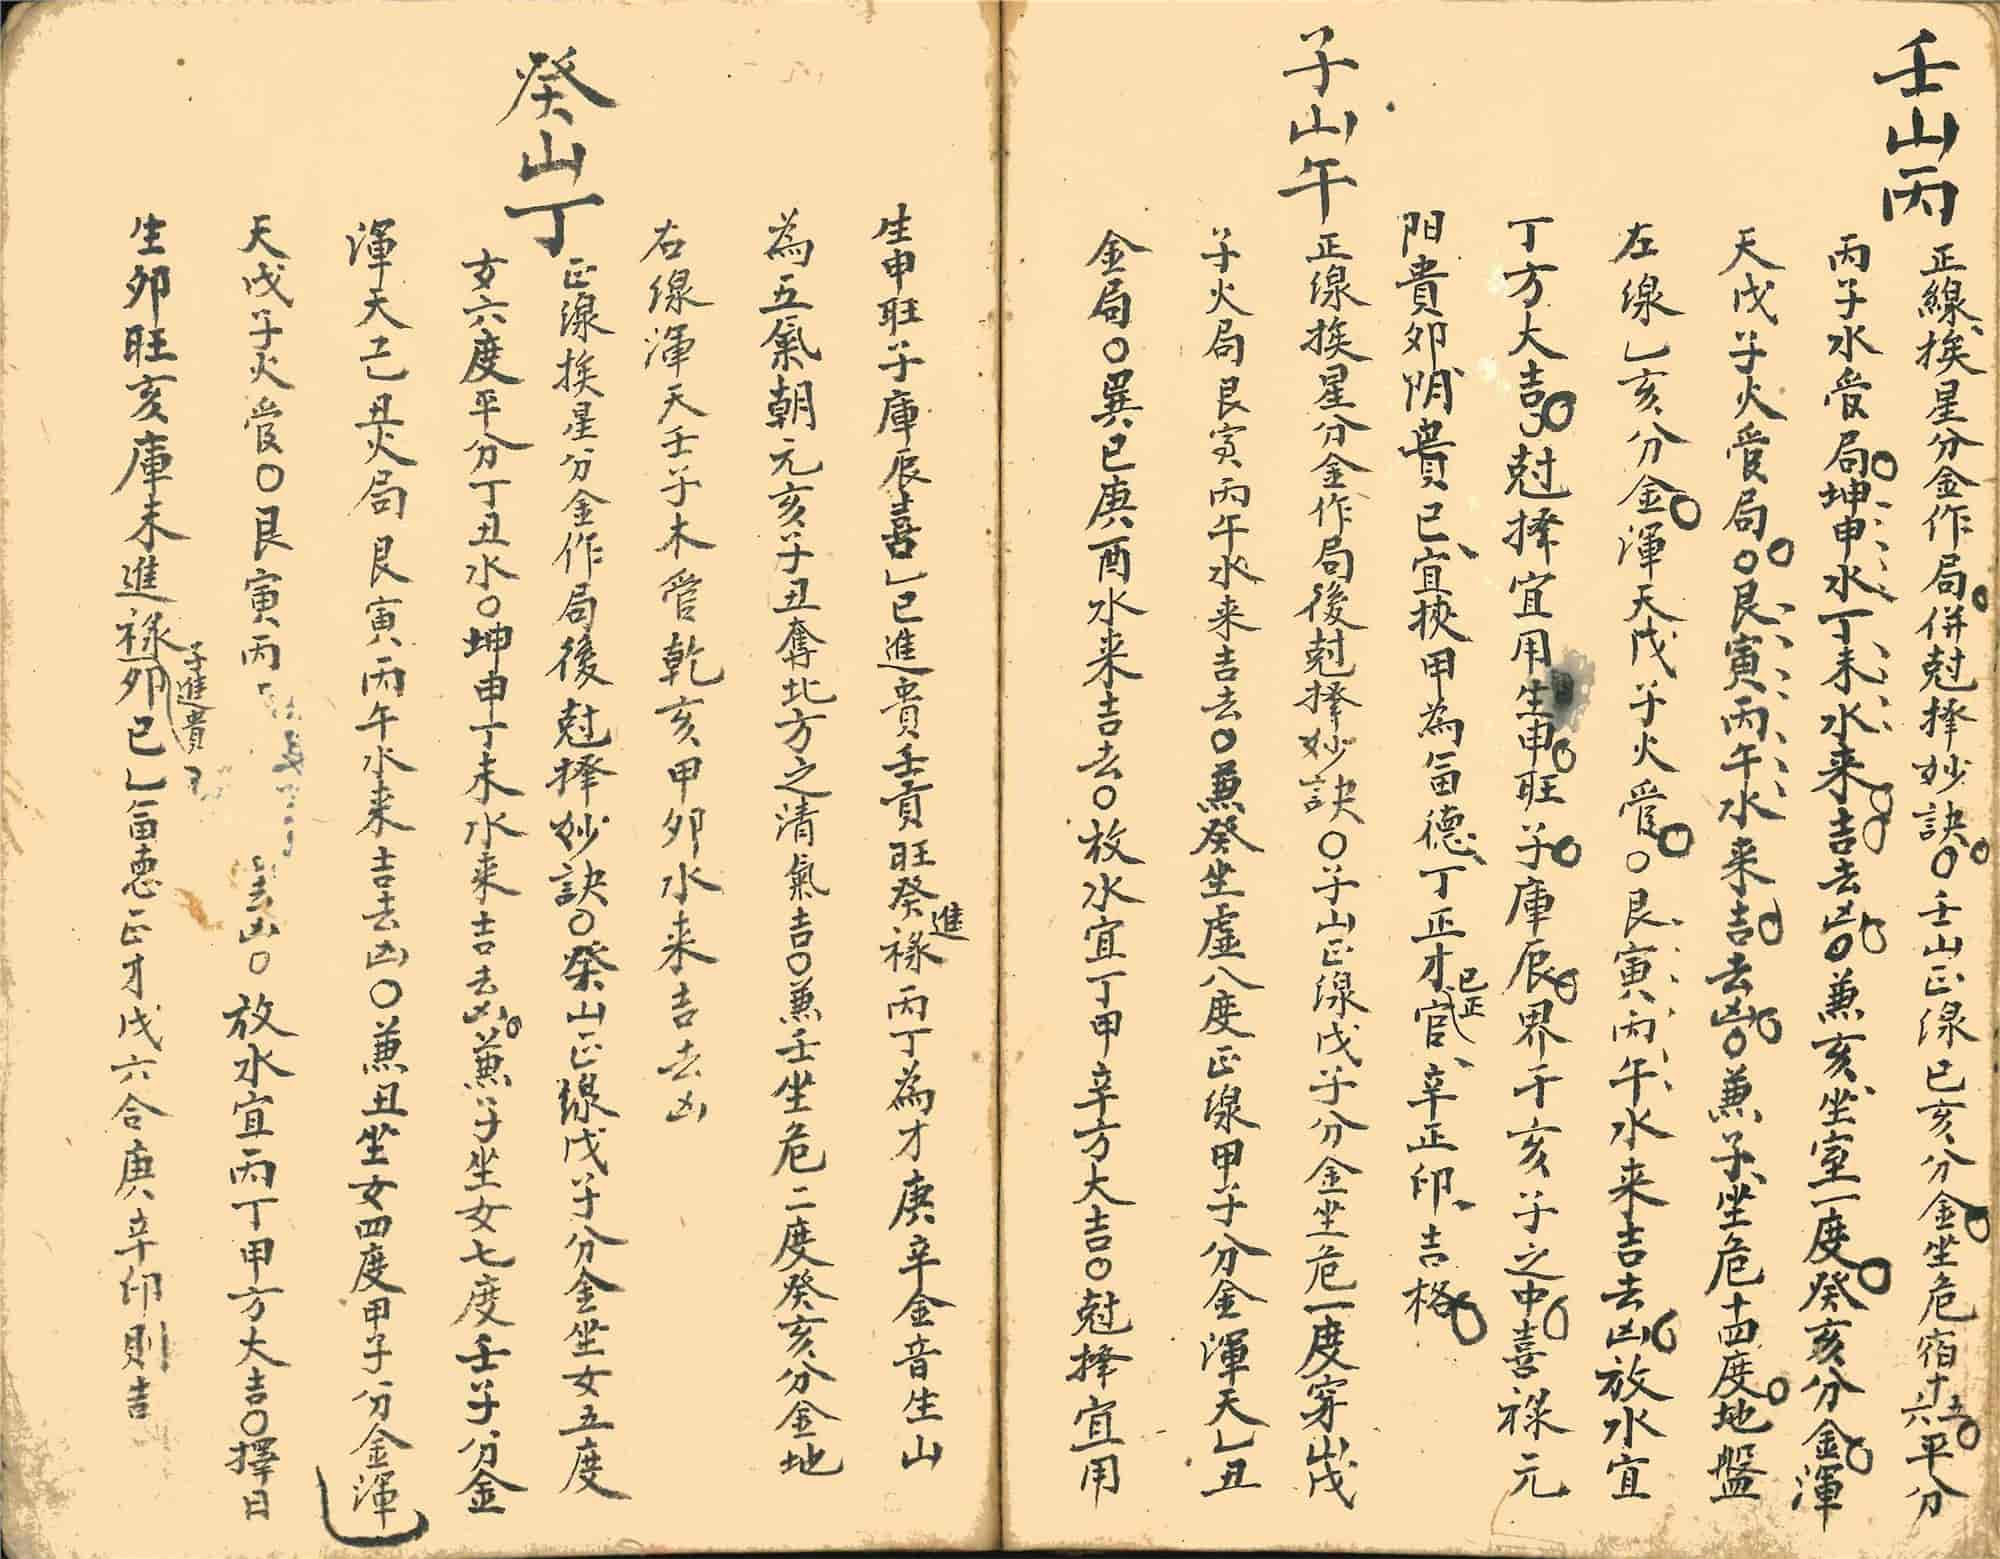 壬山丙
正線挨星分金作局併尅擇妙訣〇壬山正線已亥分金坐危宿十五六平分
丙子水受局坤申水丁未水来吉去凶〇兼亥坐室一度癸亥分金渾
天戊子火受局〇艮寅丙午水来吉去凶〇兼子坐危十四度地盤
左線乚亥分金渾天戊子火受〇艮寅丙午水来吉去凶放水宜
丁方大吉〇尅擇宜用生申旺子庫辰界干亥子之中喜祿元
陽貴卯阴貴已宜挾甲為畐德丁正才官已正辛正印吉格
子山午
正線挨星分金作局後尅擇妙訣〇子山正線戊子分金坐危一度穿山戊
子火局艮寅丙午水来吉去〇兼癸坐虛八度正線甲子分金渾天乚丑
金局〇巽已庚酉水来吉去〇放水宜丁甲辛方大吉〇尅擇宜用
生申旺子庫辰喜乚已進貴壬貢旺癸進祿丙丁為才庚辛金音生山
為五氣朝元亥子丑奪北方之清氣吉〇兼壬坐危二度癸亥分金地
右線渾天壬子木受乾亥甲卯水来吉去凶
癸山丁
正線挨星分金作局後尅擇妙訣〇癸山正線戊子分金坐女五度
女六度平分丁丑水〇坤申丁未水来吉去凶〇兼子坐女七度壬子分金
渾天己丑火局艮寅丙午水来吉去凶〇兼丑坐女四度甲子分金渾
天戊子火受〇艮寅丙去凶〇放水宜丙丁甲方大吉〇擇日
生卯旺亥庫未進祿子進貴卯已乚畐惪正才戊六合庚辛印則吉